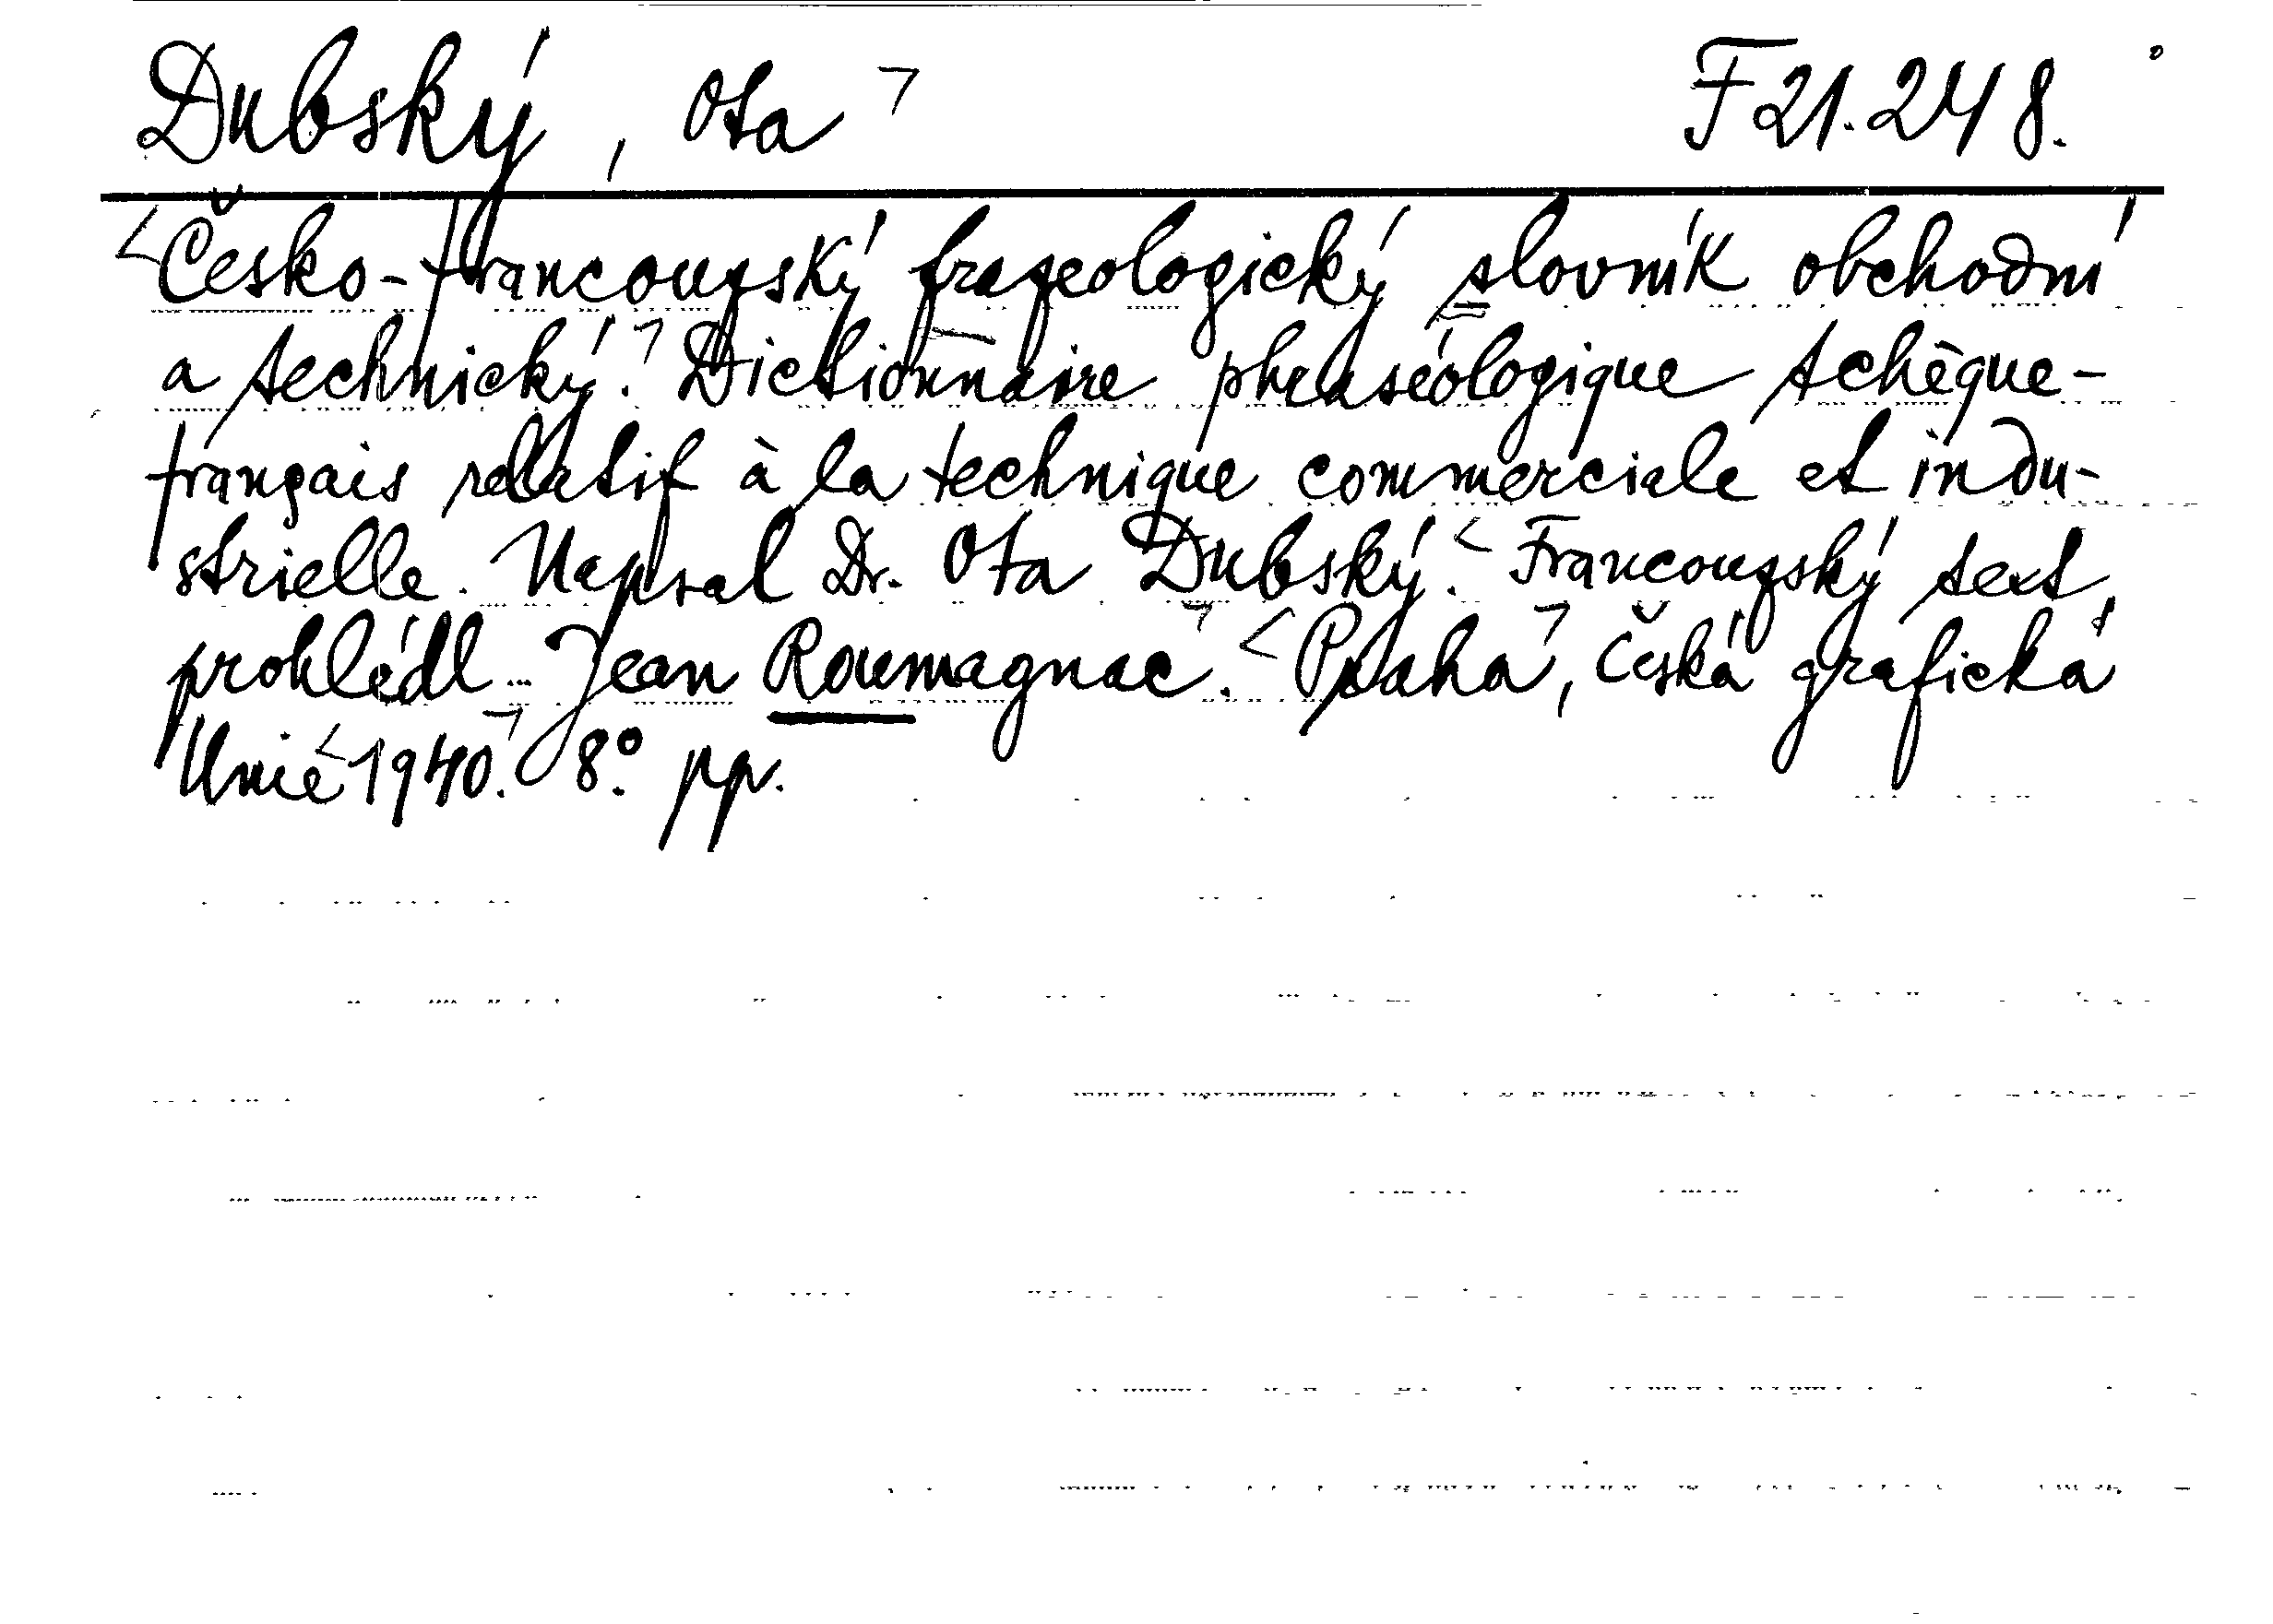 Dubský, Ota F 21.248.
Česko-francouzský frazeologický slovník obchodní
a technický. Dictionnaire phraséologique tchèque-
français relatif à la technique commerciale et indu-
strielle. Napsal Dr. Ota Dubský. Francouzský text
prohlédl Jean Roumagnac. Praha, Česká grafická
Unie 1940. 8° pp.